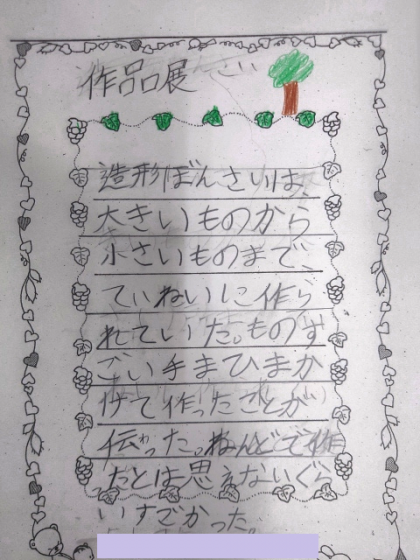 作品展
造形ぼんさいは、
大きいものから
小さいものまで、
ていねいに作ら
れていた。ものす
ごい手まひまか
けて作ったことが
伝わった。ねんどで作
たとは思えないぐら
いすごかった。